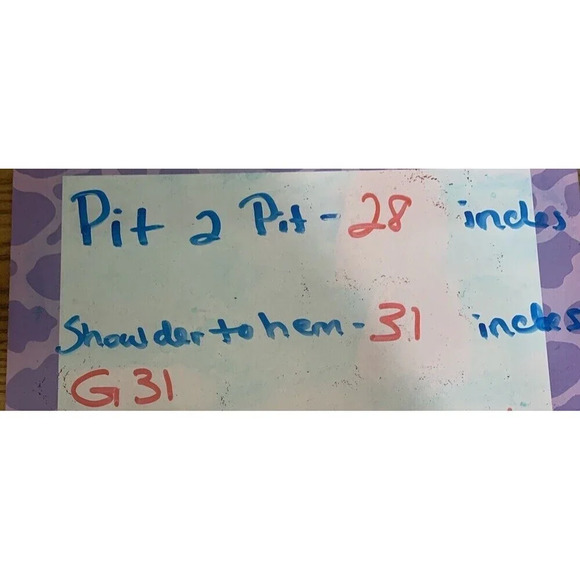 Pit 2 Pit - 28 inches
Showlder to hem - 31 inches
G31